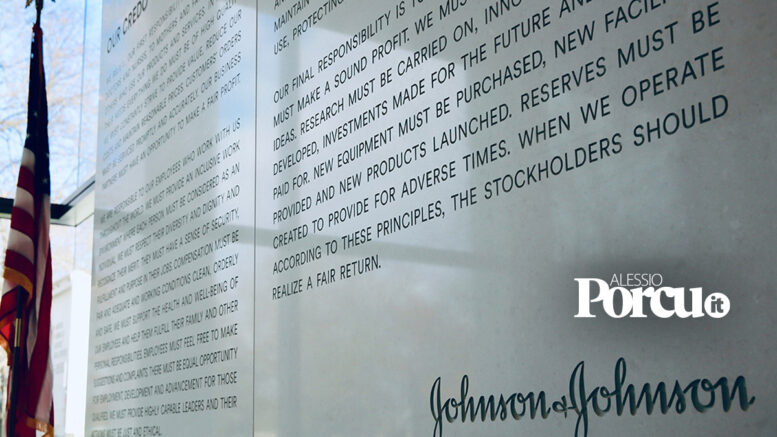 OUR CREDO
RESPONSIBILITY
OUR PRODUCTS AND SERVICES IN
EVERYTHING WE DO MUST BE OF HIGH
CONSTANTLY STRIVE TO PROVIDE VALUE, REDUCE OUR
AND MAINTAIN REASONABLE PRICES. CUSTOMERS' ORDERS
MUST BE SERVICED PROMPTLY AND ACCURATELY. OUR BUSINESS
PARTNERS MUST HAVE AN OPPORTUNITY TO MAKE A FAIR PROFIT.
WE ARE RESPONSIBLE TO OUR EMPLOYEES WHO WORK WITH US
THROUGHOUT THE WORLD. WE MUST PROVIDE AN INCLUSIVE WORK
ENVIRONMENT WHERE EACH PERSON MUST BE CONSIDERED AS AN
INDIVIDUAL. WE MUST RESPECT THEIR DIVERSITY AND DIGNITY AND
RECOGNIZE THEIR MERIT. THEY MUST HAVE A SENSE OF SECURITY,
FULFILLMENT AND PURPOSE IN THEIR JOBS. COMPENSATION MUST BE
FAIR AND ADEQUATE AND WORKING CONDITIONS CLEAN, ORDERLY
AND SAFE. WE MUST SUPPORT THE HEALTH AND WELL-BEING OF
OUR EMPLOYEES AND HELP THEM FULFILL THEIR FAMILY AND OTHER
PERSONAL RESPONSIBILITIES. EMPLOYEES MUST FEEL FREE TO MAKE
SUGGESTIONS AND COMPLAINTS. THERE MUST BE EQUAL OPPORTUNITY
FOR EMPLOYMENT, DEVELOPMENT AND ADVANCEMENT FOR THOSE
QUALIFIED. WE MUST PROVIDE HIGHLY CAPABLE LEADERS AND THEIR
ACTIONS MUST BE JUST AND ETHICAL.
MAINTAIN
USE, PROTECTING
OUR FINAL RESPONSIBILITY IS TO
MUST MAKE A SOUND PROFIT. WE MUST
IDEAS. RESEARCH MUST BE CARRIED ON,
DEVELOPED, INVESTMENTS MADE FOR THE FUTURE AND
PAID FOR. NEW EQUIPMENT MUST BE PURCHASED, NEW FACILIT
PROVIDED AND NEW PRODUCTS LAUNCHED. RESERVES MUST BE
CREATED TO PROVIDE FOR ADVERSE TIMES. WHEN WE OPERATE
ACCORDING TO THESE PRINCIPLES, THE STOCKHOLDERS SHOULD
REALIZE A FAIR RETURN.
ALESSIO
Porcu it
Johnson & Johnson